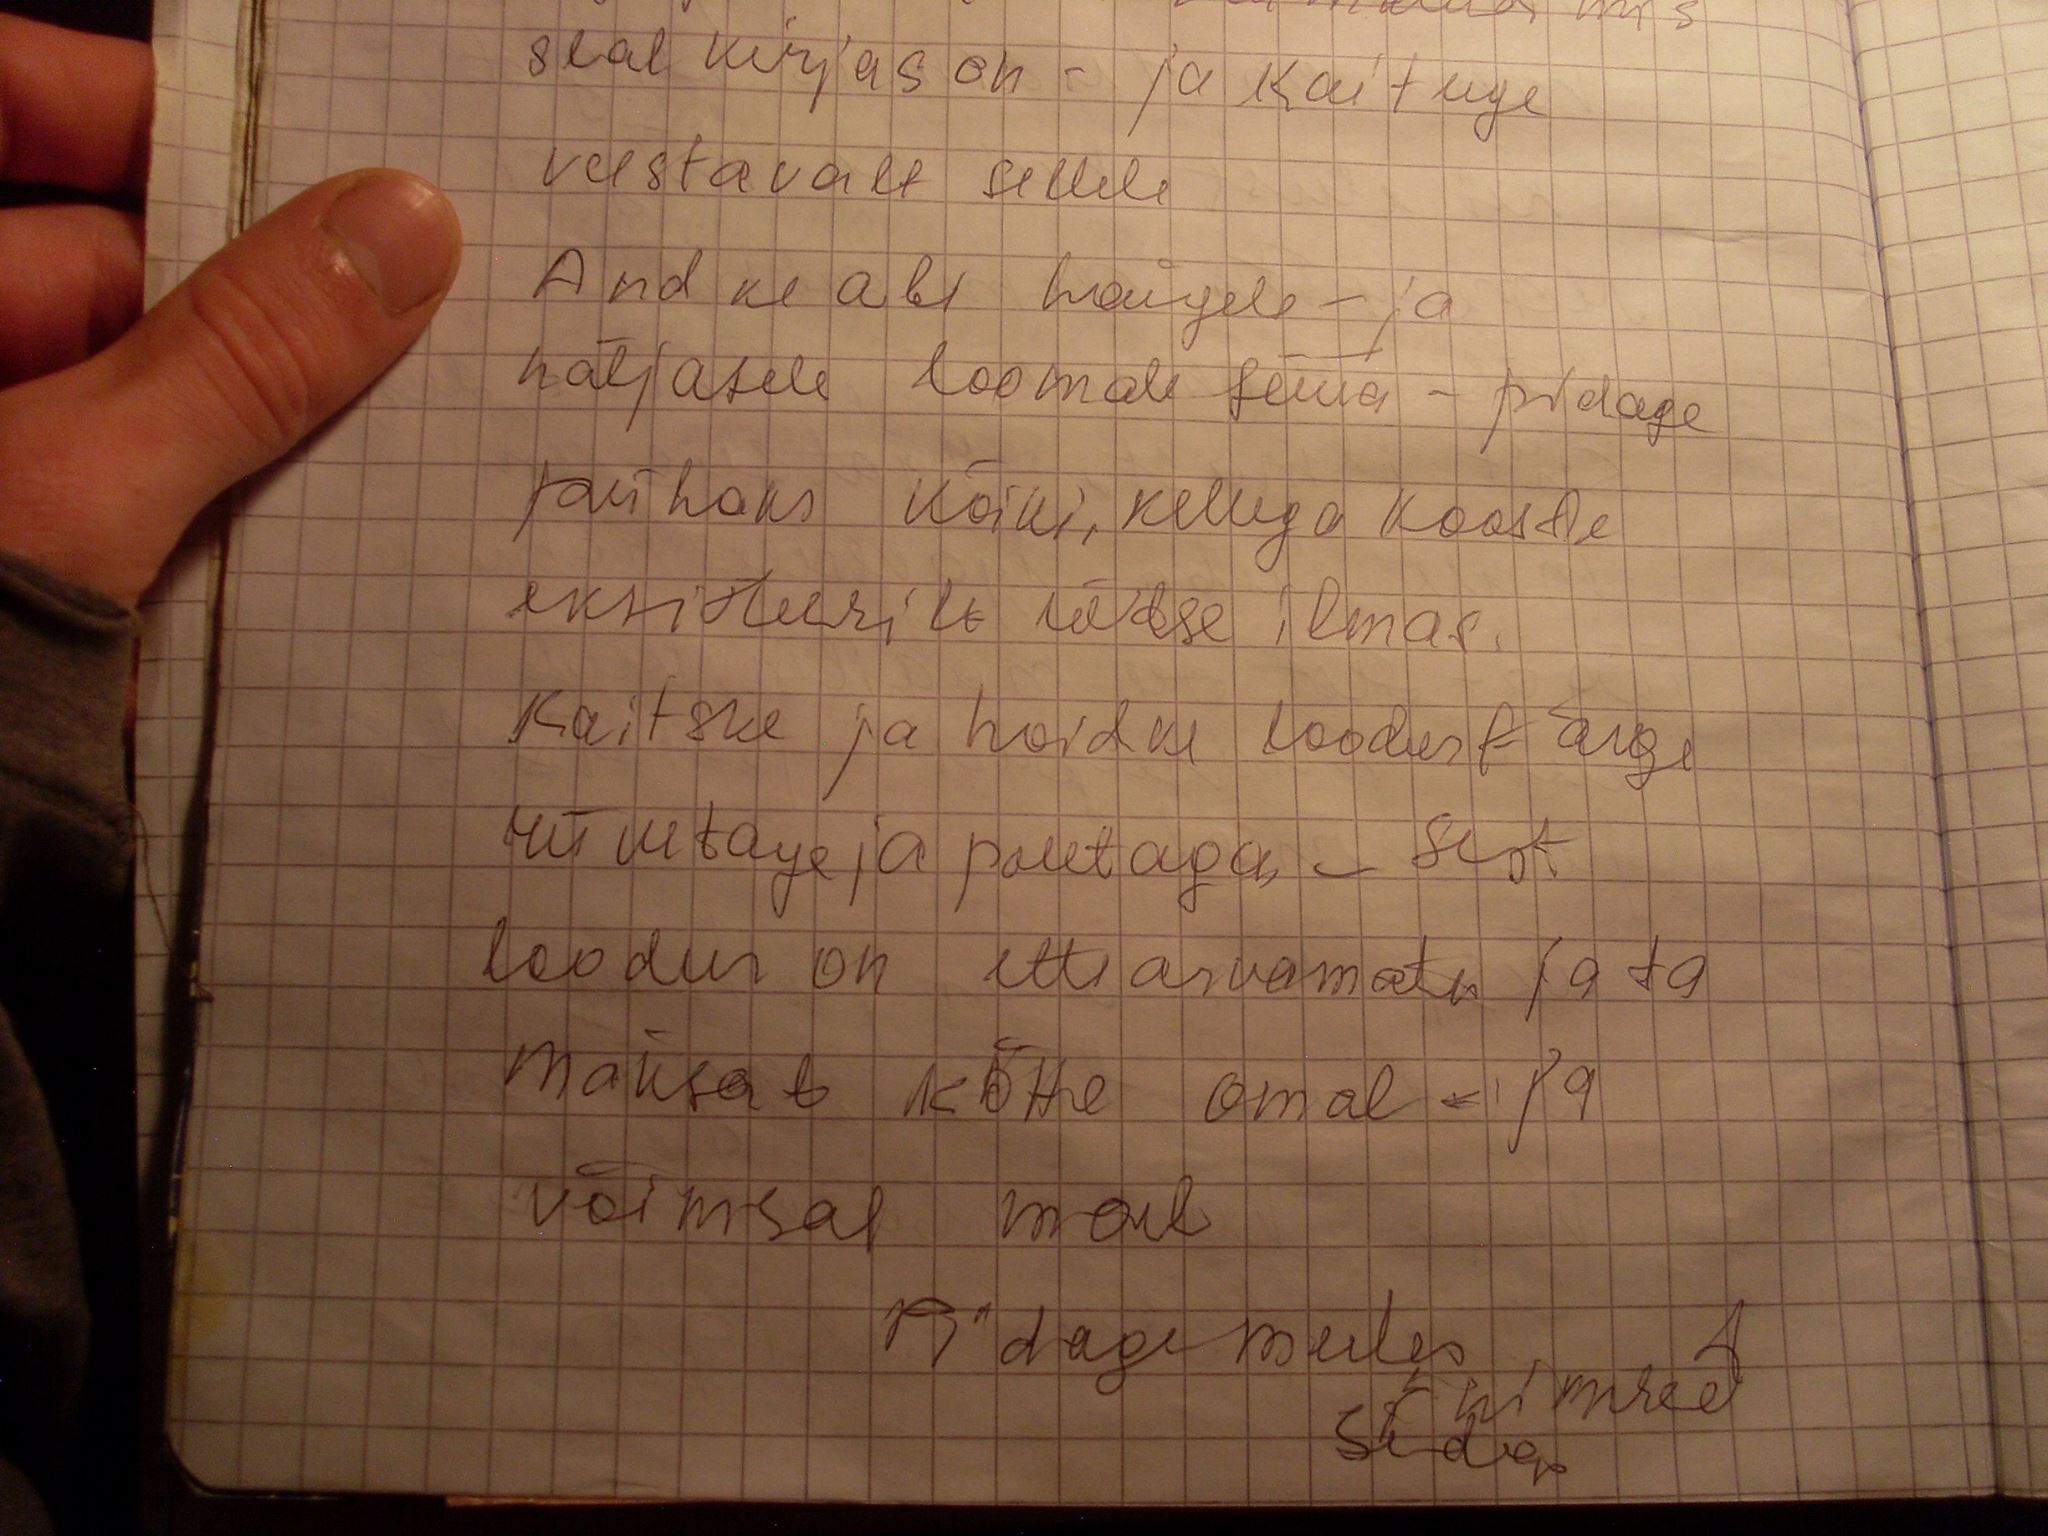 mis
seal kirjas on - ja kaituge
vastavalt sellele
Andke abi haigele - ja
näljasele loomale süüa - pidage
pühaks kõiki, kellega koos te
eksisteerite ilmas.
Kaitske ja hoidke loodust ärge
rüvetage ja potaga - sest
loodus on ettearvamatu ja ta
maksab kätte omal - ja
võimsal moel
Pidage meeles
inimesed
seda